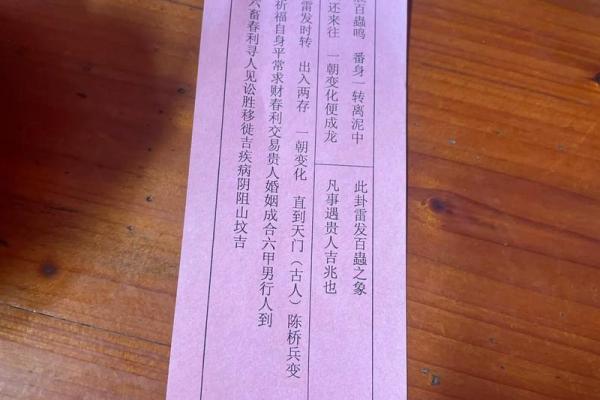 百蟲鸣　番身一转离泥中
还来往　一朝变化便成龙
此卦雷发百蟲之象
凡事遇贵人吉兆也
雷发时转　出入两存　一朝变化　直到天门（古人）陈桥兵变
祈福自身平常求财春利交易贵人婚姻成合六甲男行人到
六畜春利寻人见讼胜移徙吉疾病阴阻山坟吉